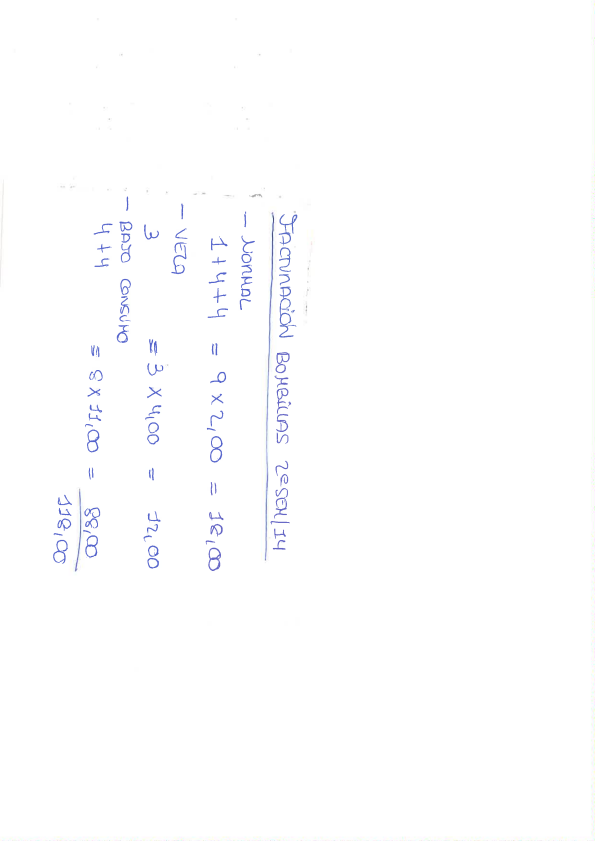 FACTURACIÓN BOMBILLAS 2ºSEM/14
- NORMAL
1+4+4 = 9 x 2,00 = 18,00
- VELA
3 = 3 x 4,00 = 12,00
- BAJO CONSUMO
4+4 = 8 x 11,00 = 88,00
118,00